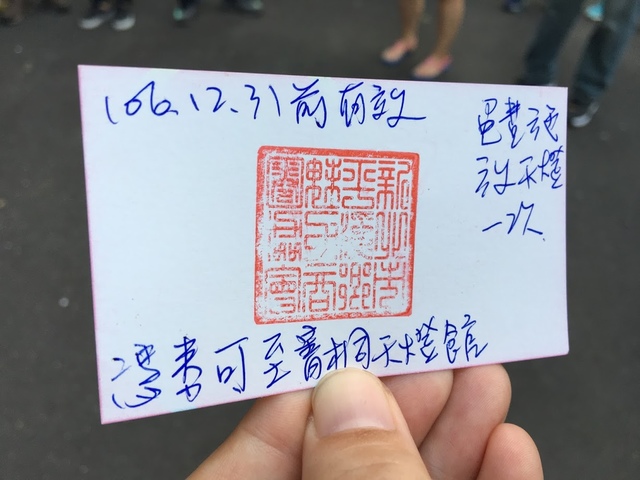 106.12.31前有效
免費施
放天燈
一次
新北市
平溪區
憑券可至菁桐天燈館